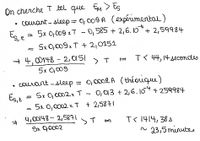 On cherche T tel que E_H > E_S
• courant-sleep = 0,009A (expérimental)
E_S,e = 5x 0,009xT - 0,585 + 2,6.10⁻⁴ + 2,59984
= 5x 0,009xT + 2,0151
→ (4,00748 - 2,0151) / (5x 0,009) > T ⇔ T < 44,14 secondes
• courant-sleep = 0,0002A (théorique)
E_S,t = 5x 0,0002xT - 0,013 + 2,6.10⁻⁴ + 2,59984
= 5x 0,0002xT + 2,5871
→ (4,00148 - 2,5871) / (5x 0,0002) > T ⇔ T < 1414,38s
~ 23,5 minutes